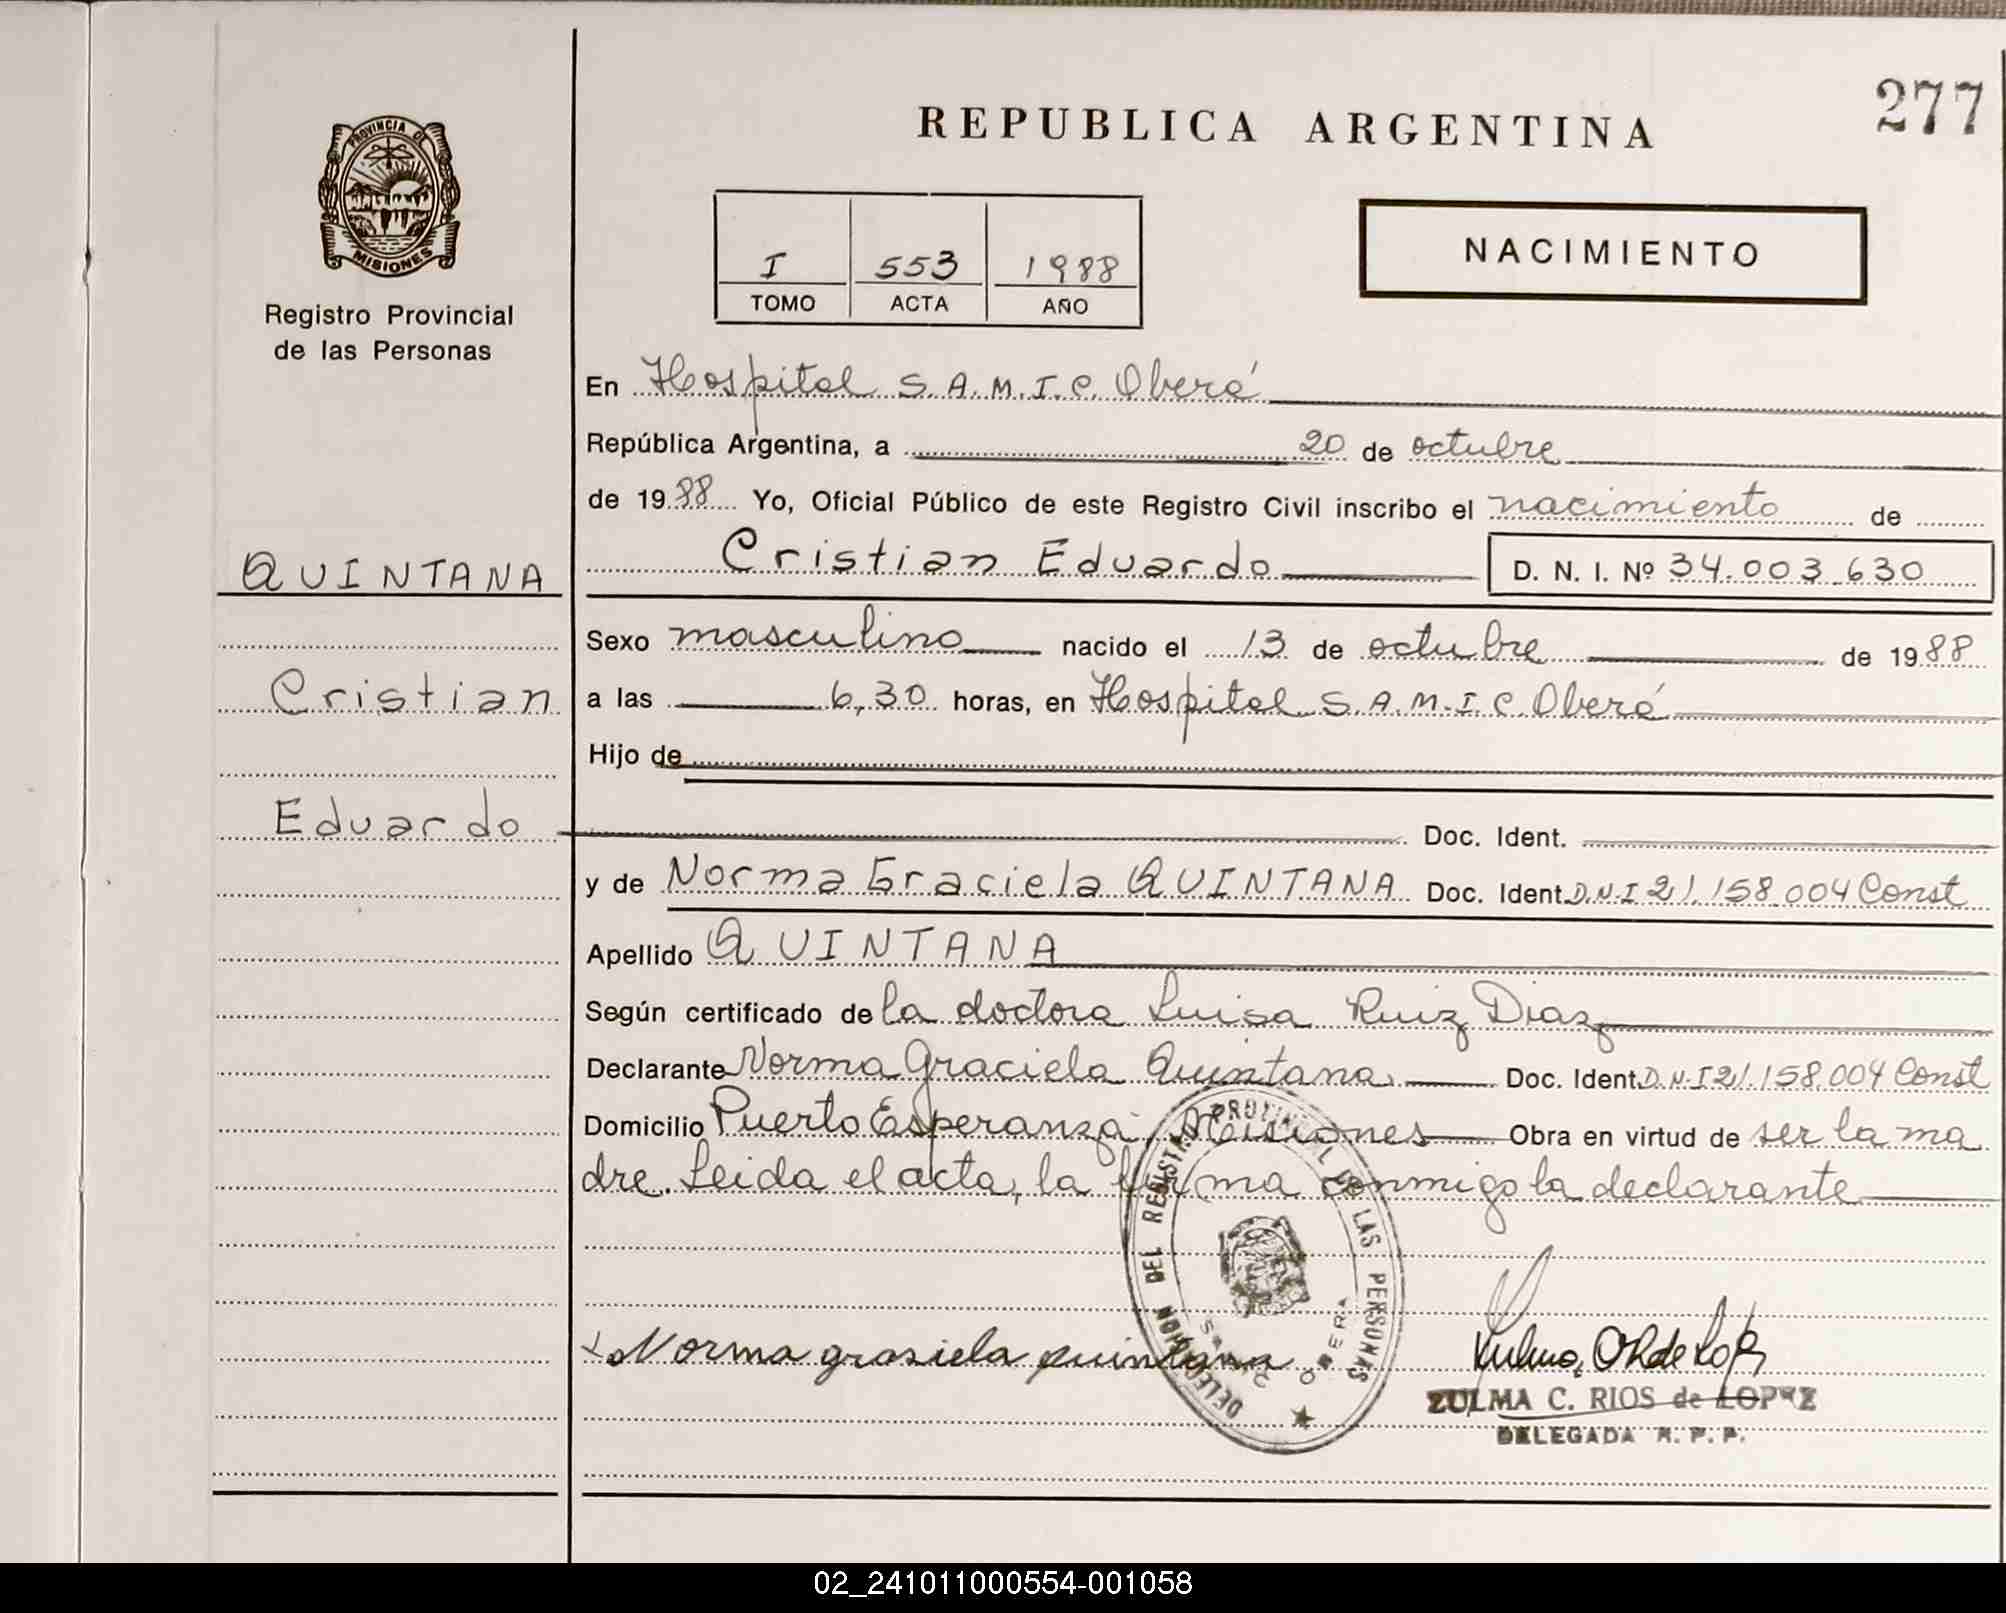 277
REPUBLICA ARGENTINA
PROVINCIA DE
MISIONES
Registro Provincial
de las Personas
I 553 1988
TOMO ACTA AÑO
NACIMIENTO
En Hospital S.A.M.I.C. Oberá
República Argentina, a 20 de octubre
de 1988 Yo, Oficial Público de este Registro Civil inscribo el nacimiento de
QUINTANA
Cristian Eduardo D. N. I. Nº 34.003.630
Sexo masculino nacido el 13 de octubre de 1988
Cristian
a las 6,30 horas, en Hospital S.A.M.I.C. Oberá
Hijo de
Eduardo
Doc. Ident.
y de Norma Graciela QUINTANA Doc. Ident. D.N.I 21.158.004 Const
Apellido QUINTANA
Según certificado de la doctora Luisa Ruiz Diaz
Declarante Norma Graciela Quintana Doc. Ident. D.N.I 21.158.004 Const
Domicilio Puerto Esperanza, Misiones Obra en virtud de ser la ma
dre. Leida el acta, la firma conmigo la declarante
DELEGACION DEL REGISTRO PROVINCIAL DE LAS PERSONAS
OBERA
Norma grasiela quintana
ZULMA C. RIOS de LOPEZ
DELEGADA R. P. P.
02_241011000554-001058